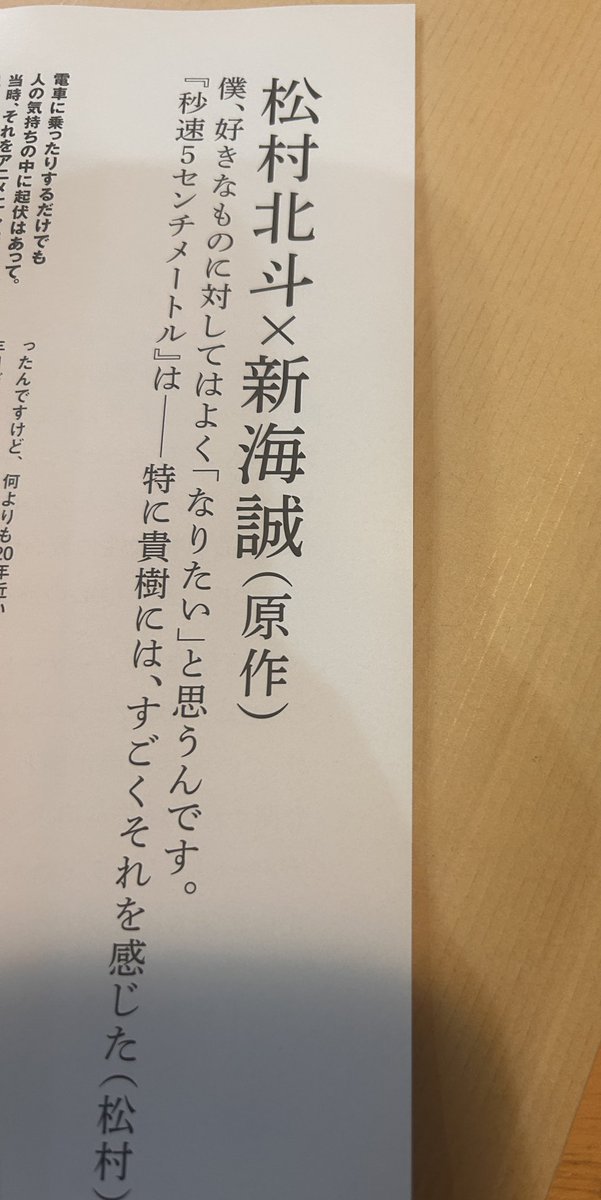 松村北斗×新海誠(原作)
僕、好きなものに対してはよく「なりたい」と思うんです。
『秒速5センチメートル』は──特に貴樹には、すごくそれを感じた(松村)
電車に乗ったりするだけでも
人の気持ちの中に起伏はあって。
当時、それをアニメ
ったんですけど、何よりも20年近い